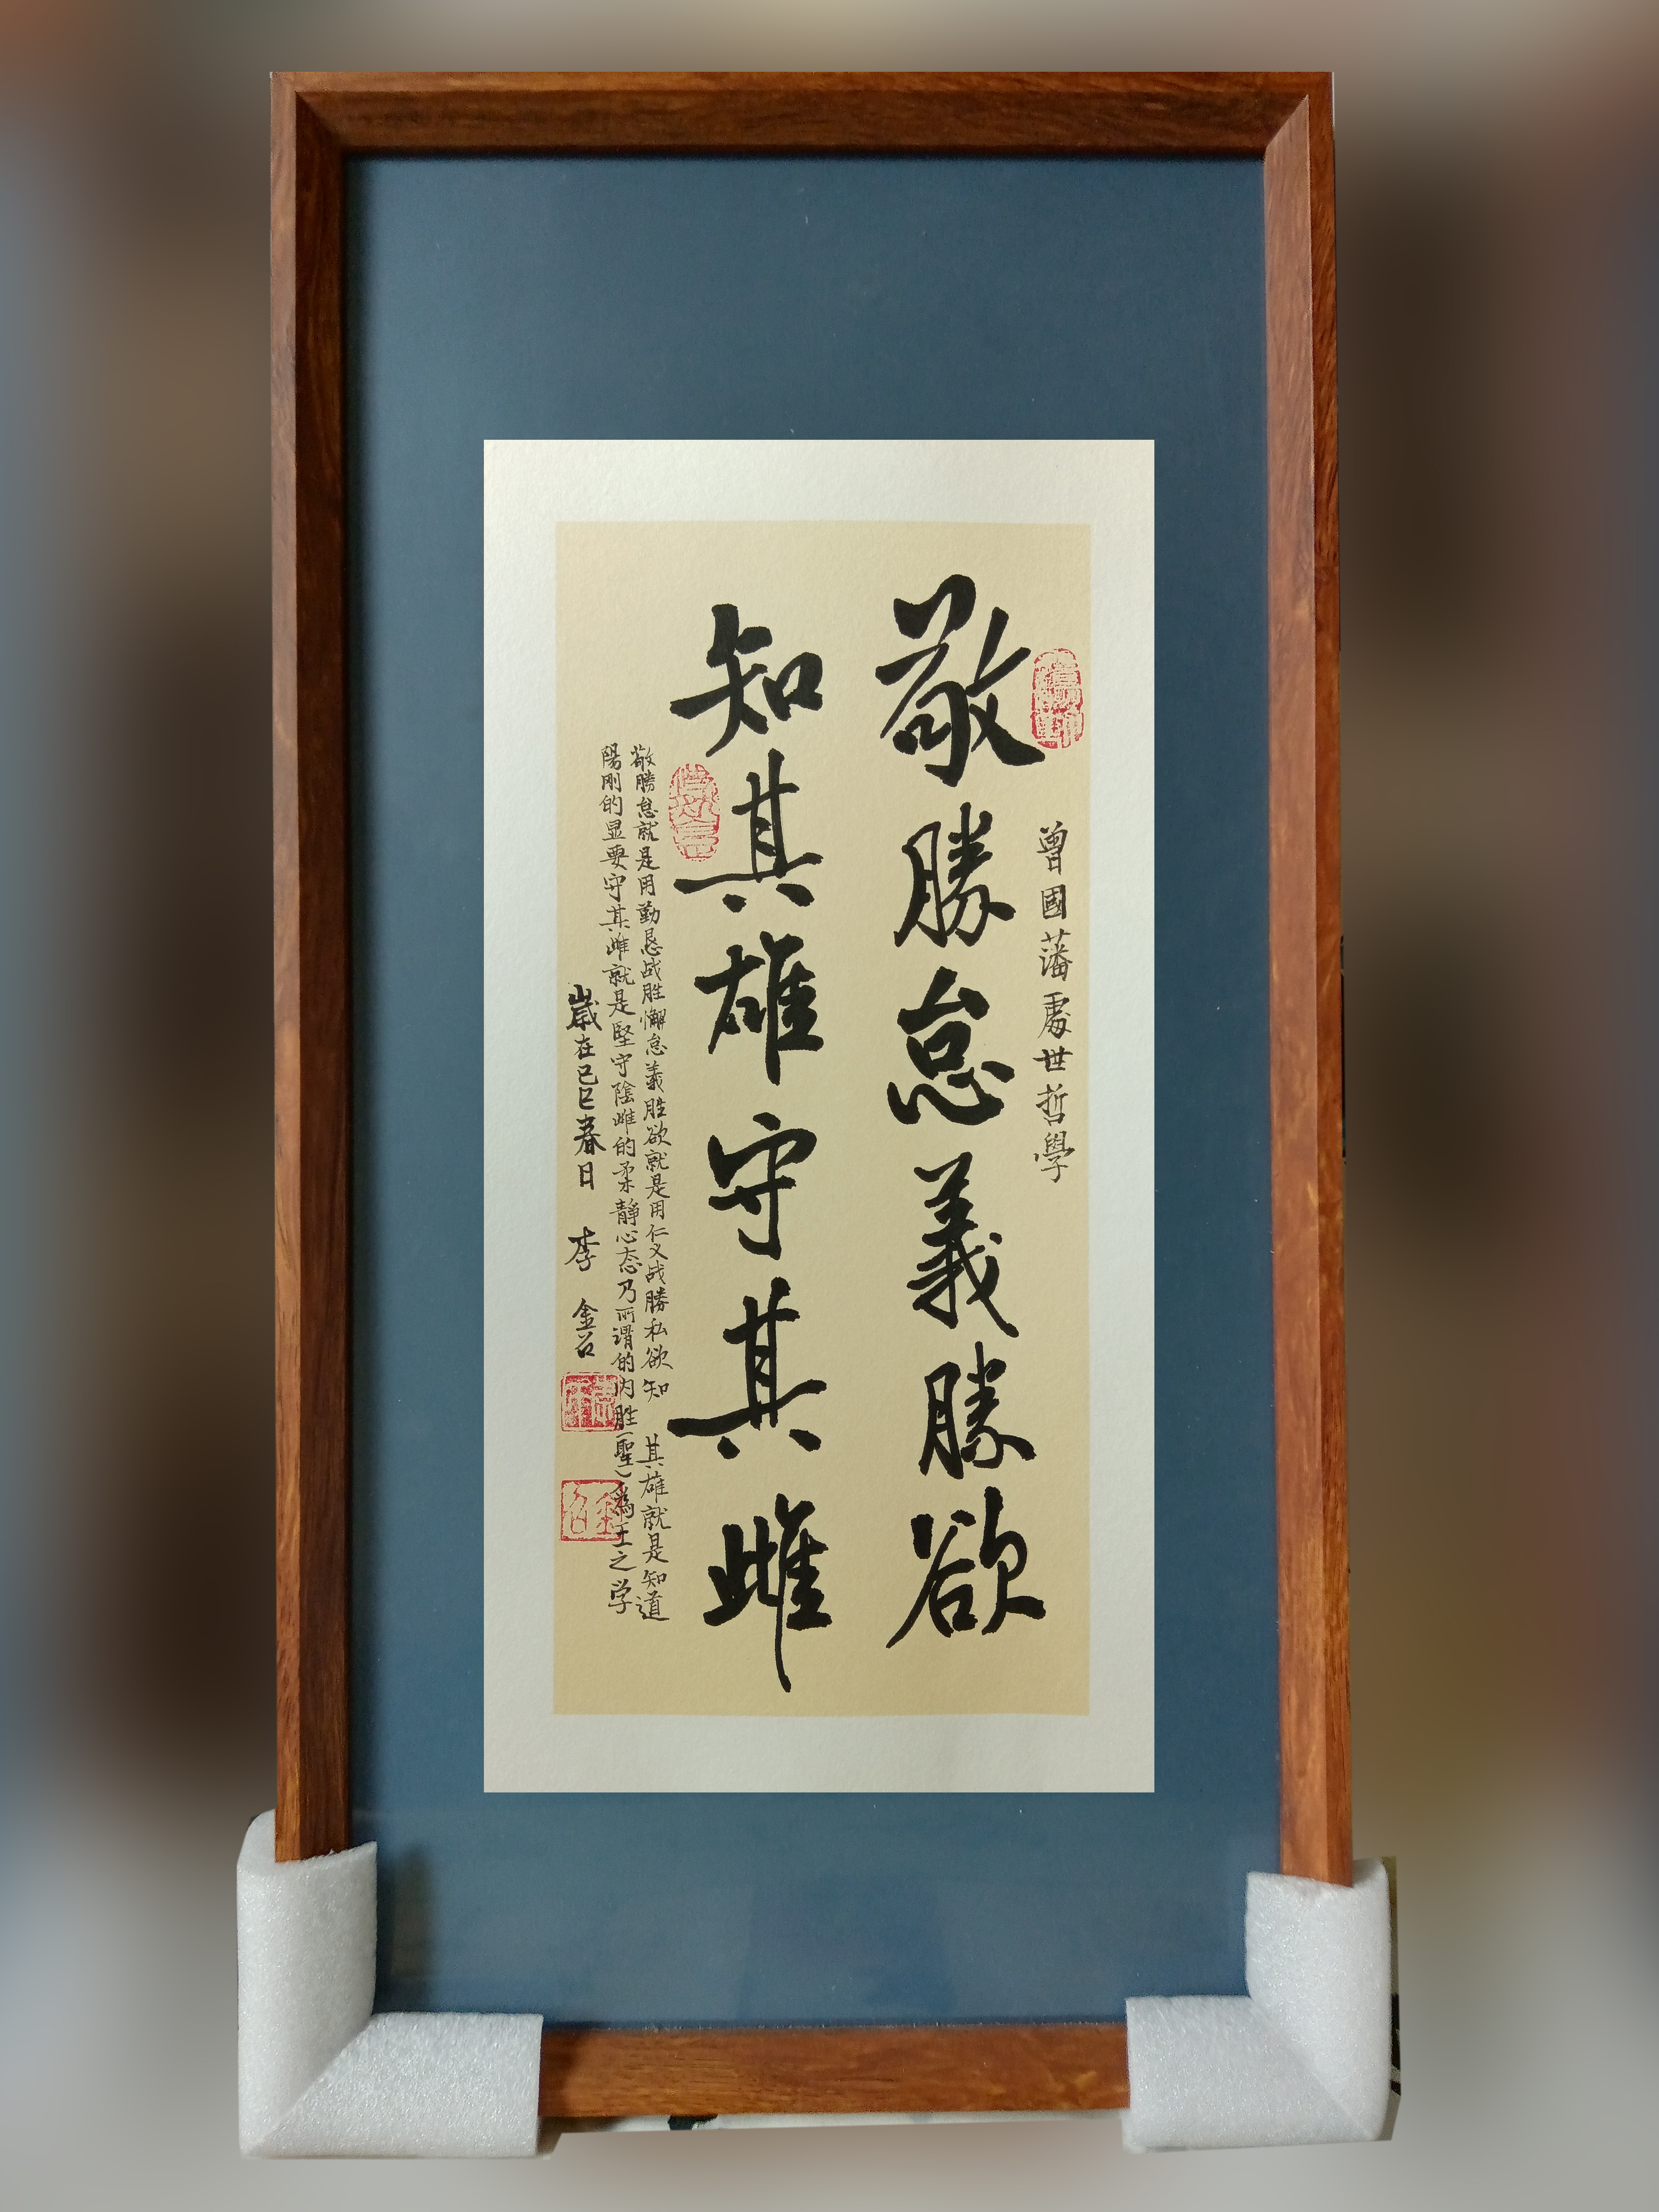 曾國藩處世哲學
敬勝怠義勝欲
知其雄守其雌
敬勝怠就是用勤恳战胜懈怠義胜欲就是用仁义战勝私欲知其雄就是知道
陽刚的显要守其雌就是堅守陰雌的柔靜心态乃所谓的内胜(聖)為王之学
歲在己巳春日 李金召